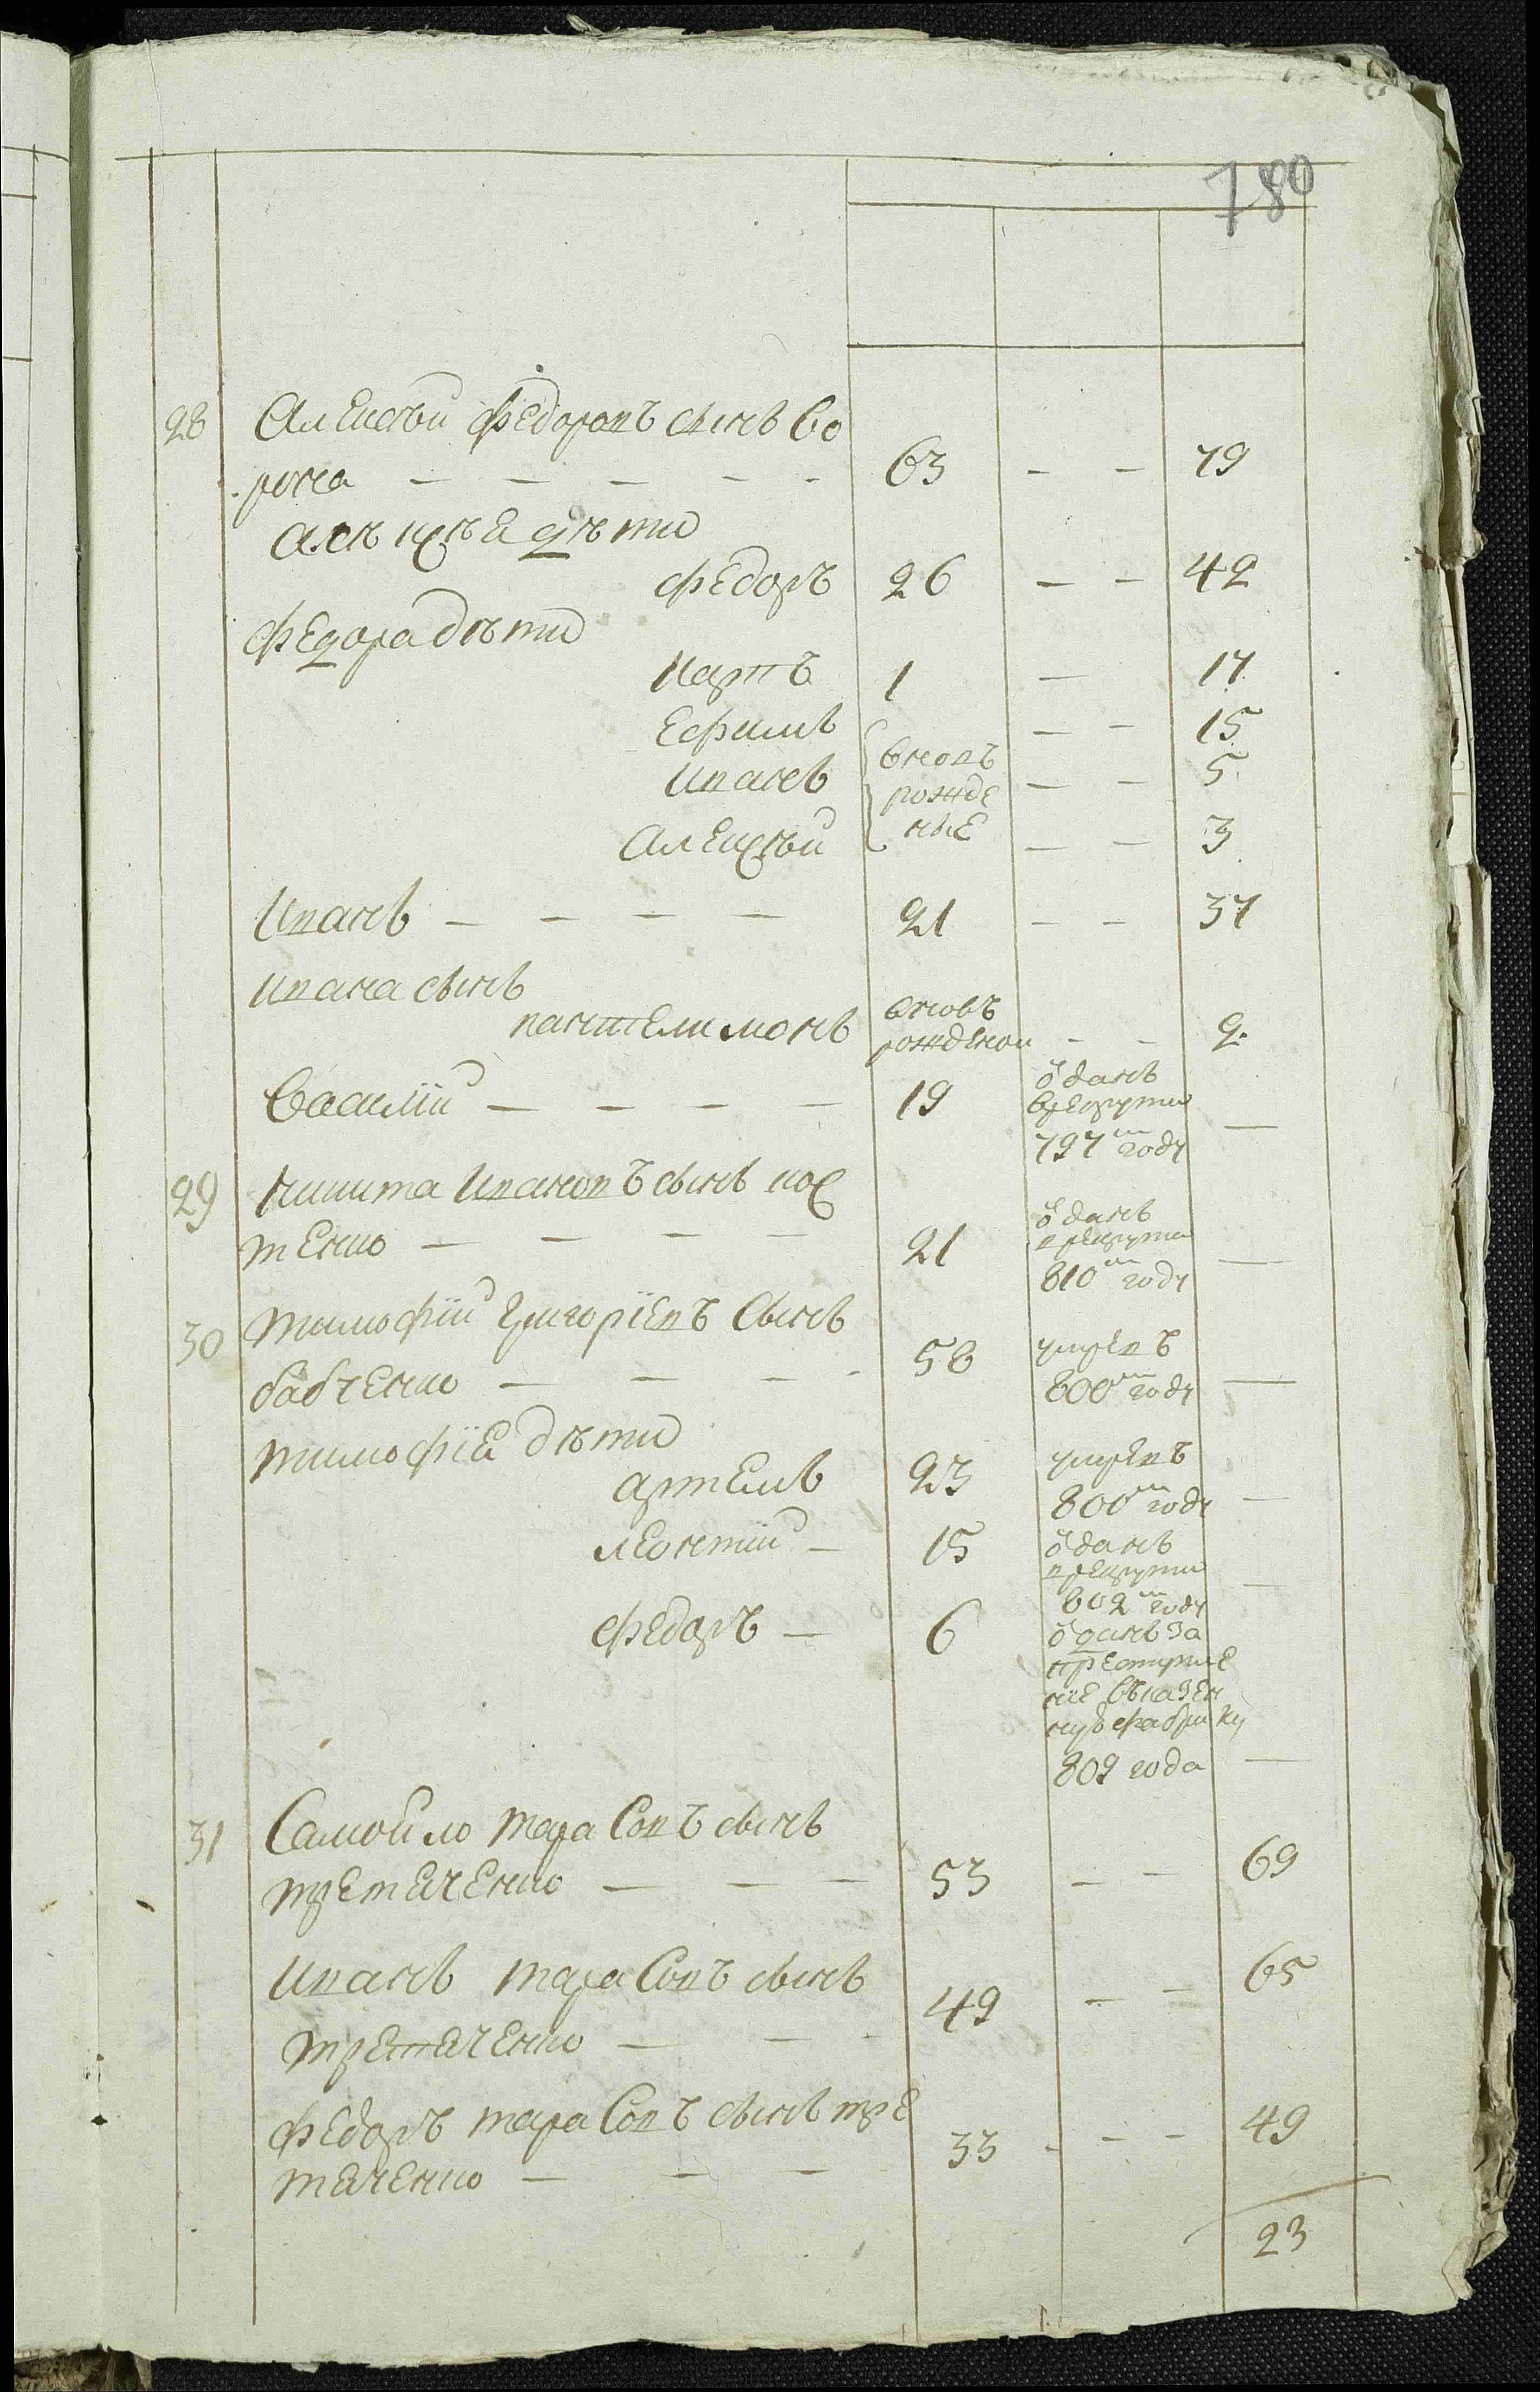 780
28 Алексѣй Федоровъ сынъ Во
рона — — — — - 63 — — 79
Алѣксѣя дѣти
Федоръ 26 — — 42
Федора дѣти
Карпъ 1 — 17
Ефимъ — — 15
Иванъ вновь рожде ные — — 5
Алексѣй — — 3
Иванъ — — — — 21 — — 37
Ивана сынъ
пантелимонъ вновь рожденой - - 2.
Василій — — — — 19 ѿданъ врекруты 797м году —
29 Никита Ивановъ сынъ кос
тенко — — — — 21 ѿданъ врекруты 810м году —
30 Тимофій григоріевъ сынъ
бабченко — — — - 58 умревъ 800м году —
Тимофія дѣти
артемъ 23 умревъ 800м году —
леонтій — 15 ѿданъ врекруты 802м году —
Федоръ — 6 ѿданъ за преступле ніе вказен ную фабрику 809 года —
31 Самойло тарасовъ сынъ
третяченко — — — 53 — — 69
Иванъ тарасовъ сынъ
третяченко — — - 49 — — 65
Федоръ тарасовъ сынъ тре
тяченко — — — 33 - - - 49
23